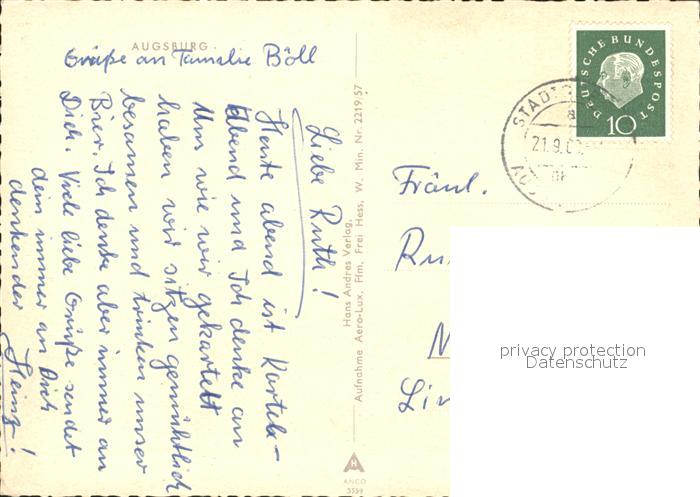 AUGSBURG
Grüße an Familie Böll
Liebe Ruth!
Heute abend ist Kartel-
Abend und Ich denke an
Um wie wir gekartelt
haben wir sitzen gemühtlich
besammen und trinken unser
Bier. Ich denke aber immer an
Dich. Viele liebe Grüße sendet
dein immer an Dich
denkender Heinz!
Hans Andres Verlag,
Aufnahme Aero-Lux, Ffm, Frei Hess, W. Min. Nr. 2219/57
ANCO
5559
DEUTSCHE BUNDESPOST
10
21.9.6
Fräul.
privacy protection
Datenschutz